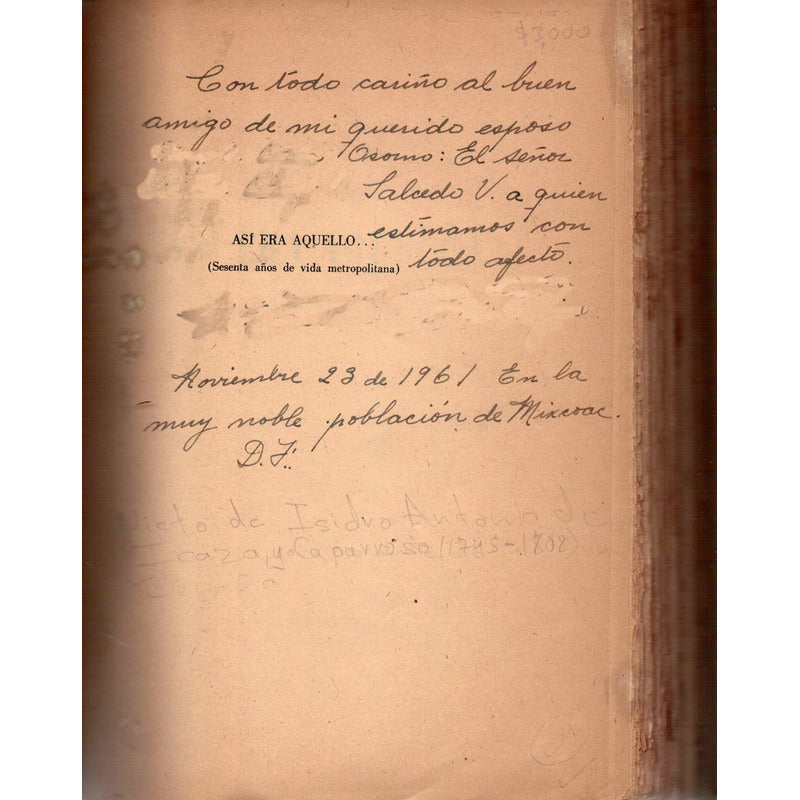 $3,000
Con todo cariño al buen
amigo de mi querido esposo
Osorno: El señor
Salcedo V. a quien
estimamos con
todo afecto.
ASÍ ERA AQUELLO...
(Sesenta años de vida metropolitana)
Noviembre 23 de 1961 En la
muy noble población de Mixcoac.
D.F.
de Isidro Antonio de
Icaza, y Caparroso (1745-1808)